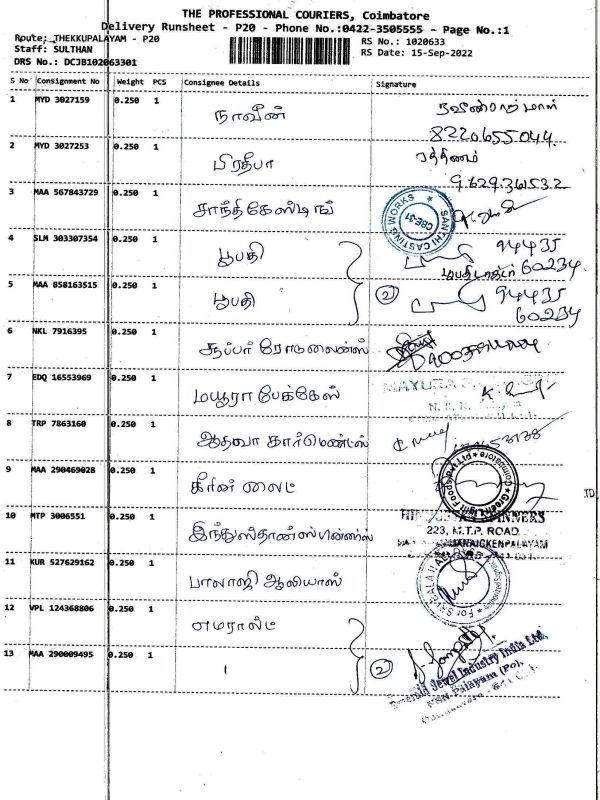 THE PROFESSIONAL COURIERS, Coimbatore
Delivery Runsheet - P20 - Phone No.:0422-3505555 - Page No.:1
Route: THEKKUPALAYAM - P20
RS No.: 1020633
Staff: SULTHAN
RS Date: 15-Sep-2022
DRS No.: DCJB102063301
S No Consignment No Weight PCS Consignee Details Signature
1 MYD 3027159 0.250 1 நாவீன்
8220655044
2 MYD 3027253 0.250 1 பிரதீபா ரத்தினம்
9629361532
3 MAA 567843729 0.250 1 சாந்திகேஸ்டிங்
SANTHI CASTING WORKS
CBE-31
4 SLM 303307354 0.250 1 பூபதி 94435
60234
5 MAA 858163515 0.250 1 பூபதி 2 94435
60234
6 NKL 7916395 0.250 1 சூப்பர் ரோடுலைன்ஸ்
7 EDQ 16553969 0.250 1 மயூரா பேக்கேஸ்
MAYURA
8 TRP 7863160 0.250 1 ஆதவா கார்மெண்ட்ஸ்
9 MAA 290469028 0.250 1 கிரீன் லைட்
GreenLight Foods Pvt Ltd
Coimbatore
10 MTP 3006551 0.250 1 இந்துஸ்தான்ஸ்பின்னர்ஸ்
223, M.T.P. ROAD
11 KUR 527629162 0.250 1 பாலாஜி ஆலியாஸ்
12 VPL 124368806 0.250 1 எமரால்ட்
13 MAA 290009495 0.250 1 2
Emerald Jewel Industry India Ltd.
NSN. Palayam (Po),